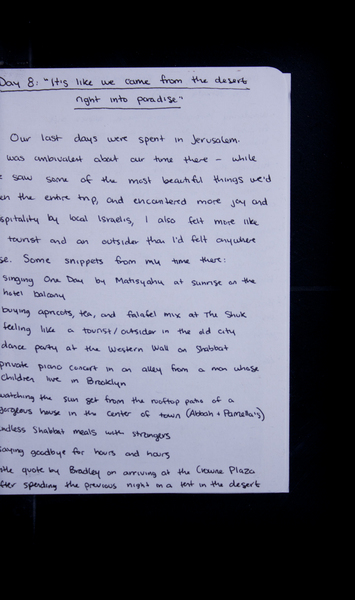 Day 8: "It's like we came from the desert
right into paradise"
Our last days were spent in Jerusalem.
was ambivalent about our time there - while
saw some of the most beautiful things we'd
en the entire trip, and encountered more joy and
spitality by local Israelis, I also felt more like
tourist and an outsider than I'd felt anywhere
se. Some snippets from my time there:
singing One Day by Matisyahu at sunrise on the
hotel balcony
buying apricots, tea, and falafel mix at The Shuk
feeling like a tourist/outsider in the old city
dance party at the Western Wall on Shabbat
private piano concert in an alley from a man whose
children live in Brooklyn
watching the sun set from the rooftop patio of a
gorgeous house in the center of town (Abbah + Pamella's)
endless Shabbat meals with strangers
saying goodbye for hours and hours
the quote by Bradley on arriving at the Crowne Plaza
after spending the previous night in a tent in the desert